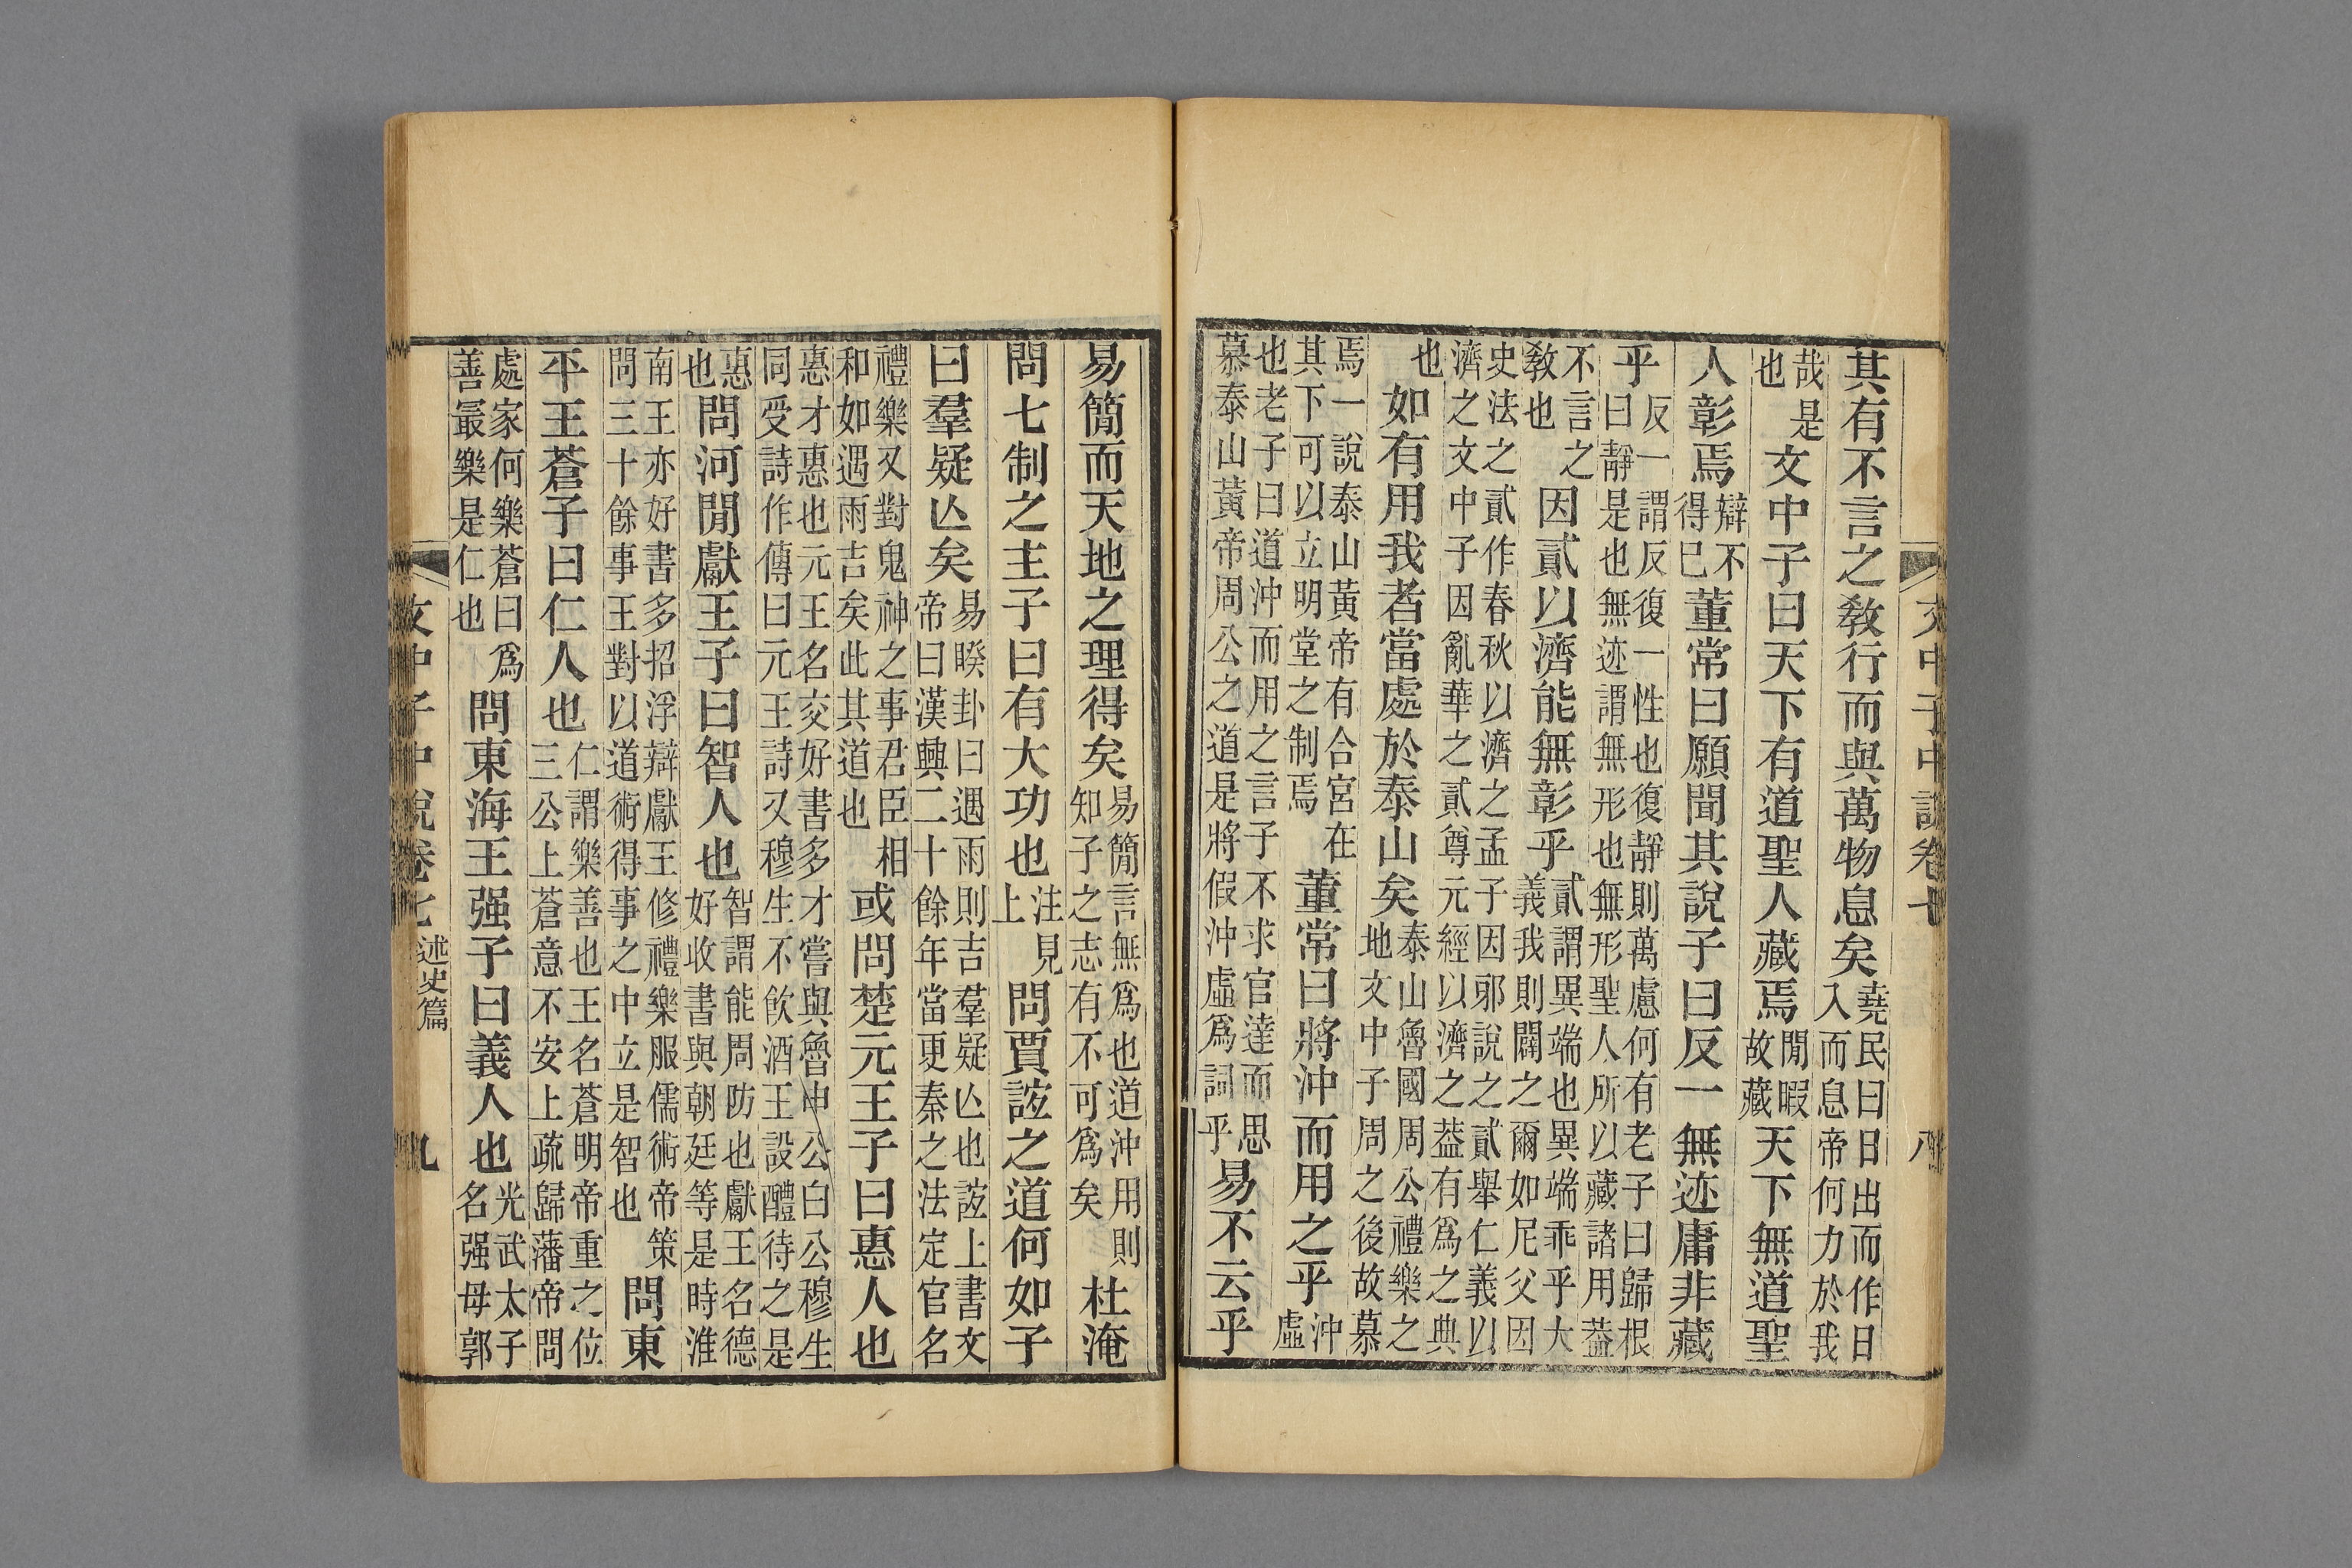 文中子中說卷七 八
其有不言之敎行而與萬物息矣堯民曰日出而作日入而息帝何力於我
哉是也文中子曰天下有道聖人藏焉閒暇故藏天下無道聖
人彰焉辯不得巳董常曰願聞其說子曰反一無迹庸非藏
乎反一謂反復一性也復靜則萬慮何有老子曰歸根曰靜是也無迹謂無形也無形聖人所以藏諸用葢
不言之之敎也因貳以濟能無彰乎貳謂異端也異端乖乎大義我則闢之爾如尼父因
史法之貳作春秋以濟之孟子因邪說之貳舉仁義以濟之文中子因亂華之貳尊元經以濟之葢有爲之典
也如有用我者當處於泰山矣泰山魯國周公禮樂之地文中子周之後故慕
焉一說泰山黃帝有合宮在其下可以立明堂之制焉董常曰將沖而用之乎沖虛
也老子曰道沖而用之言子不求官達而思慕泰山黃帝周公之道是將假沖虛爲詞乎易不云乎
易簡而天地之理得矣易簡言無爲也道沖用則知子之志有不可爲矣杜淹
問七制之主子曰有大功也注見上問賈誼之道何如子
曰羣疑亾矣易睽卦曰遇雨則吉羣疑亾也誼上書文帝曰漢興二十餘年當更秦之法定官名
禮樂又對鬼神之事君臣相和如遇雨吉矣此其道也或問楚元王子曰惠人也
惠才惠也元王名交好書多才嘗與魯申公白公穆生同受詩作傳曰元王詩又穆生不飲酒王設醴待之是
惠也問河閒獻王子曰智人也智謂能周防也獻王名德好收書與朝廷等是時淮
南王亦好書多招浮辯獻王修禮樂服儒術帝策問三十餘事王對以道術得事之中立是智也問東
平王蒼子曰仁人也仁謂樂善也王名蒼明帝重之位三公上蒼意不安上疏歸藩帝問
處家何樂蒼曰爲善最樂是仁也問東海王强子曰義人也光武太子名强母郭
文中子中說卷七 述史篇 九